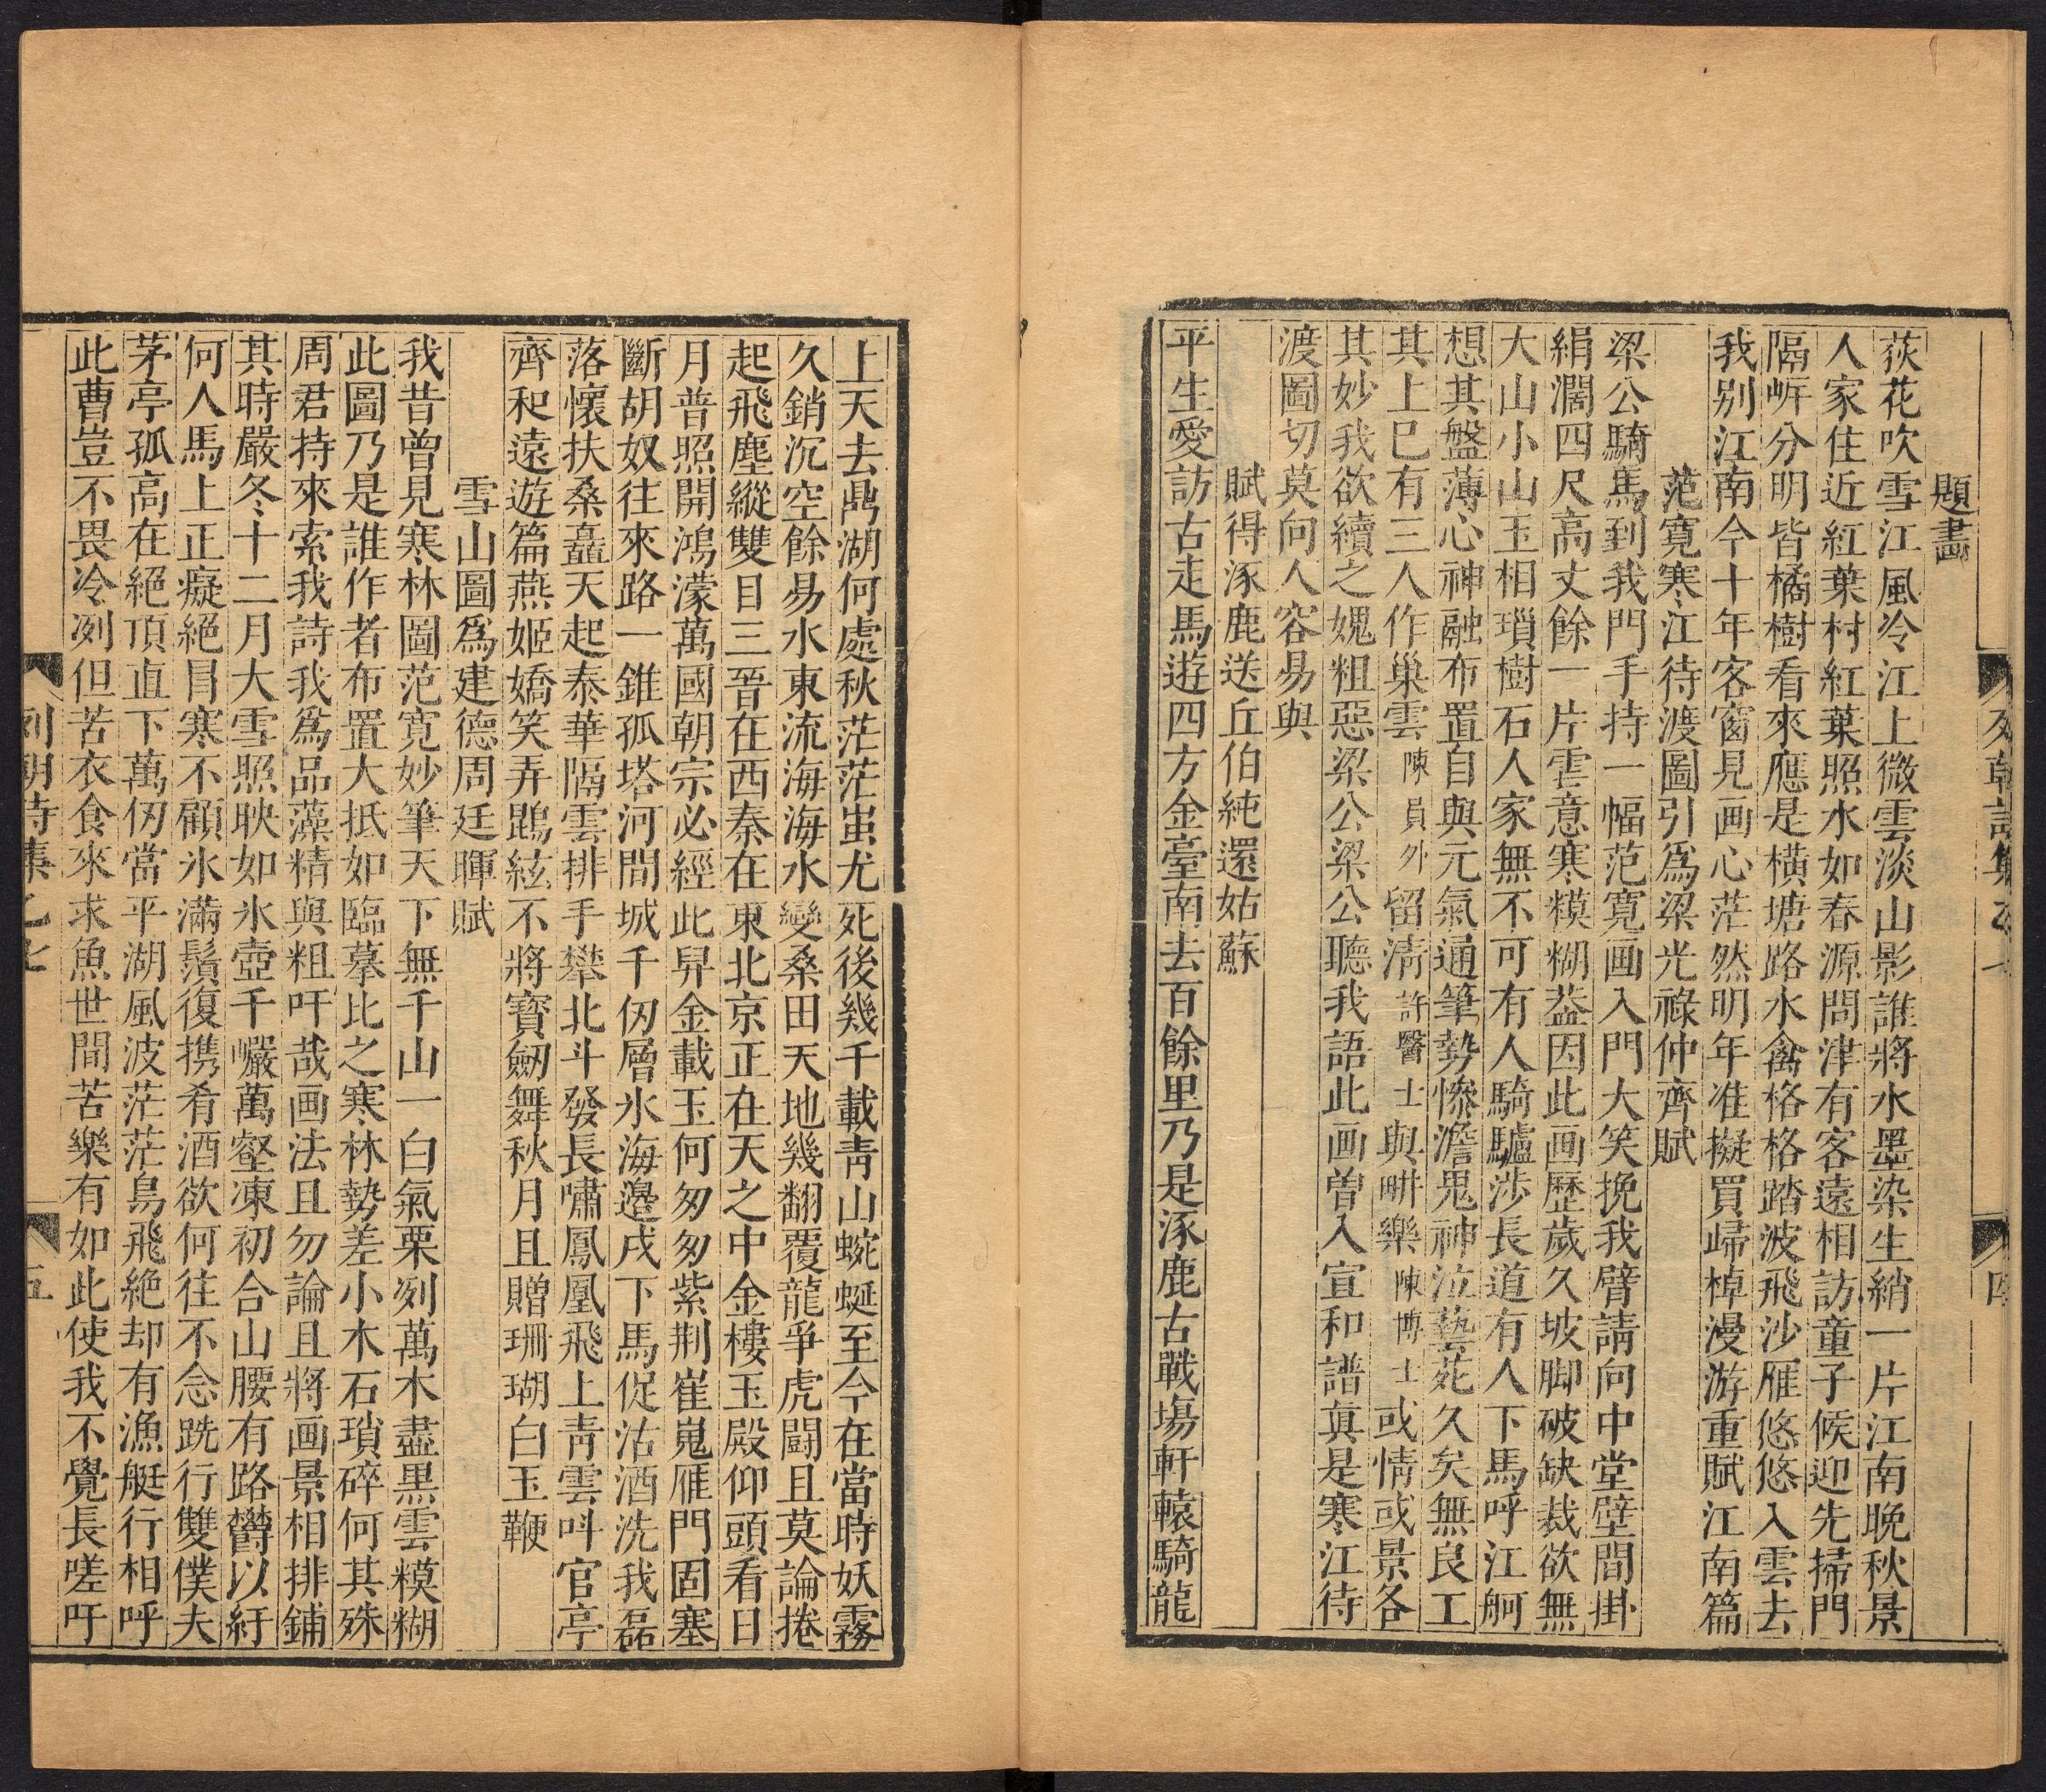 題畫
荻花吹雪江風冷江上微雲淡山影誰將水墨染生綃一片江南晚秋景
人家住近紅葉村紅葉照水如春源問津有客遠相訪童子候迎先掃門
隔岍分明皆橘樹看來應是橫塘路水禽格格踏波飛沙雁悠悠入雲去
我别江南今十年客窗見画心茫然明年准擬買歸棹漫游重賦江南篇
范寛寒江待渡圖引爲梁光祿仲齊賦
梁公騎馬到我門手持一幅范寛画入門大笑挽我臂請向中堂壁間掛
絹濶四尺高丈餘一片雲意寒糢糊葢因此画歷歲久坡脚破缺裁欲無
大山小山玉相瑣樹石人家無不可有人騎驢涉長道有人下馬呼江舸
想其盤薄心神融布置自與元氣通筆勢慘澹鬼神泣藝苑久矣無良工
其上已有三人作巢雲陳員外留清許醫士與畊樂陳博士或情或景各
其妙我欲續之媿粗惡梁公梁公聽我語此画曽入宣和譜真是寒江待
渡圖切莫向人容易與
賦得涿鹿送丘伯純還姑蘇
平生愛訪古走馬遊四方金臺南去百餘里乃是涿鹿古戰塲軒轅騎龍
列朝詩集乙七 四
上天去鼎湖何處秋茫茫蚩尤死後幾千載靑山蜿蜒至今在當時妖霧
久銷沉空餘易水東流海海水變桑田天地幾翻覆龍爭虎鬪且莫論捲
起飛塵縱雙目三晉在西秦在東北京正在天之中金樓玉殿仰頭看日
月普照開鴻濛萬國朝宗必經此舁金載玉何匆匆紫荆崔嵬雁門固塞
斷胡奴往來路一錐孤塔河間城千仞層氷海邊戍下馬促沽酒洗我磊
落懷扶桑矗天起泰華隔雲排手攀北斗發長嘯鳳凰飛上靑雲呌官亭
齊和遠遊篇燕姬嬌笑弄鵾絃不將寳劒舞秋月且贈珊瑚白玉鞭
雪山圖爲建德周廷暉賦
我昔曾見寒林圖范寛妙筆天下無千山一白氣栗冽萬木盡黒雲糢糊
此圖乃是誰作者布置大抵如臨摹比之寒林勢差小木石瑣碎何其殊
周君持來索我詩我爲品藻精與粗吁哉画法且勿論且將画景相排鋪
其時嚴冬十二月大雪照映如氷壺千巖萬壑凍初合山腰有路欝以紆
何人馬上正癡絕冐寒不顧氷滿鬚復携肴酒欲何往不念跣行雙僕夫
茅亭孤高在絕頂直下萬仞當平湖風波茫茫鳥飛絕却有漁艇行相呼
此曹豈不畏冷冽但苦衣食來求魚世間苦樂有如此使我不覺長嗟吁
列朝詩集乙七 五